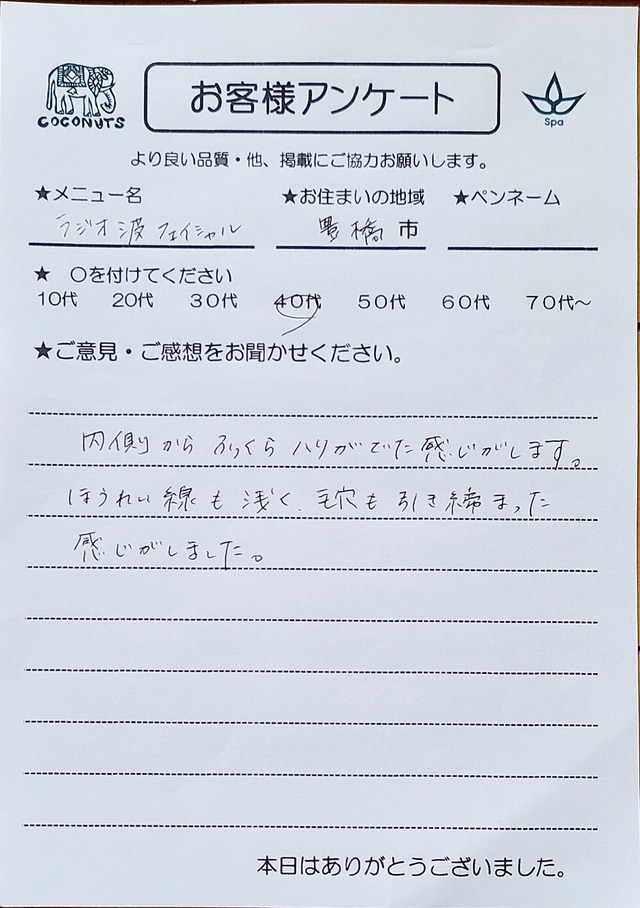 COCONUTS
お客様アンケート
Spa
より良い品質・他、掲載にご協力お願いします。
★メニュー名 ★お住まいの地域 ★ペンネーム
ラジオ波フェイシャル 豊橋市
★ 〇を付けてください
10代 20代 30代 40代 50代 60代 70代〜
★ご意見・ご感想をお聞かせください。
内側からふっくらハリがでた感じがします。
ほうれい線も浅く、毛穴も引き締まった
感じがしました。
本日はありがとうございました。